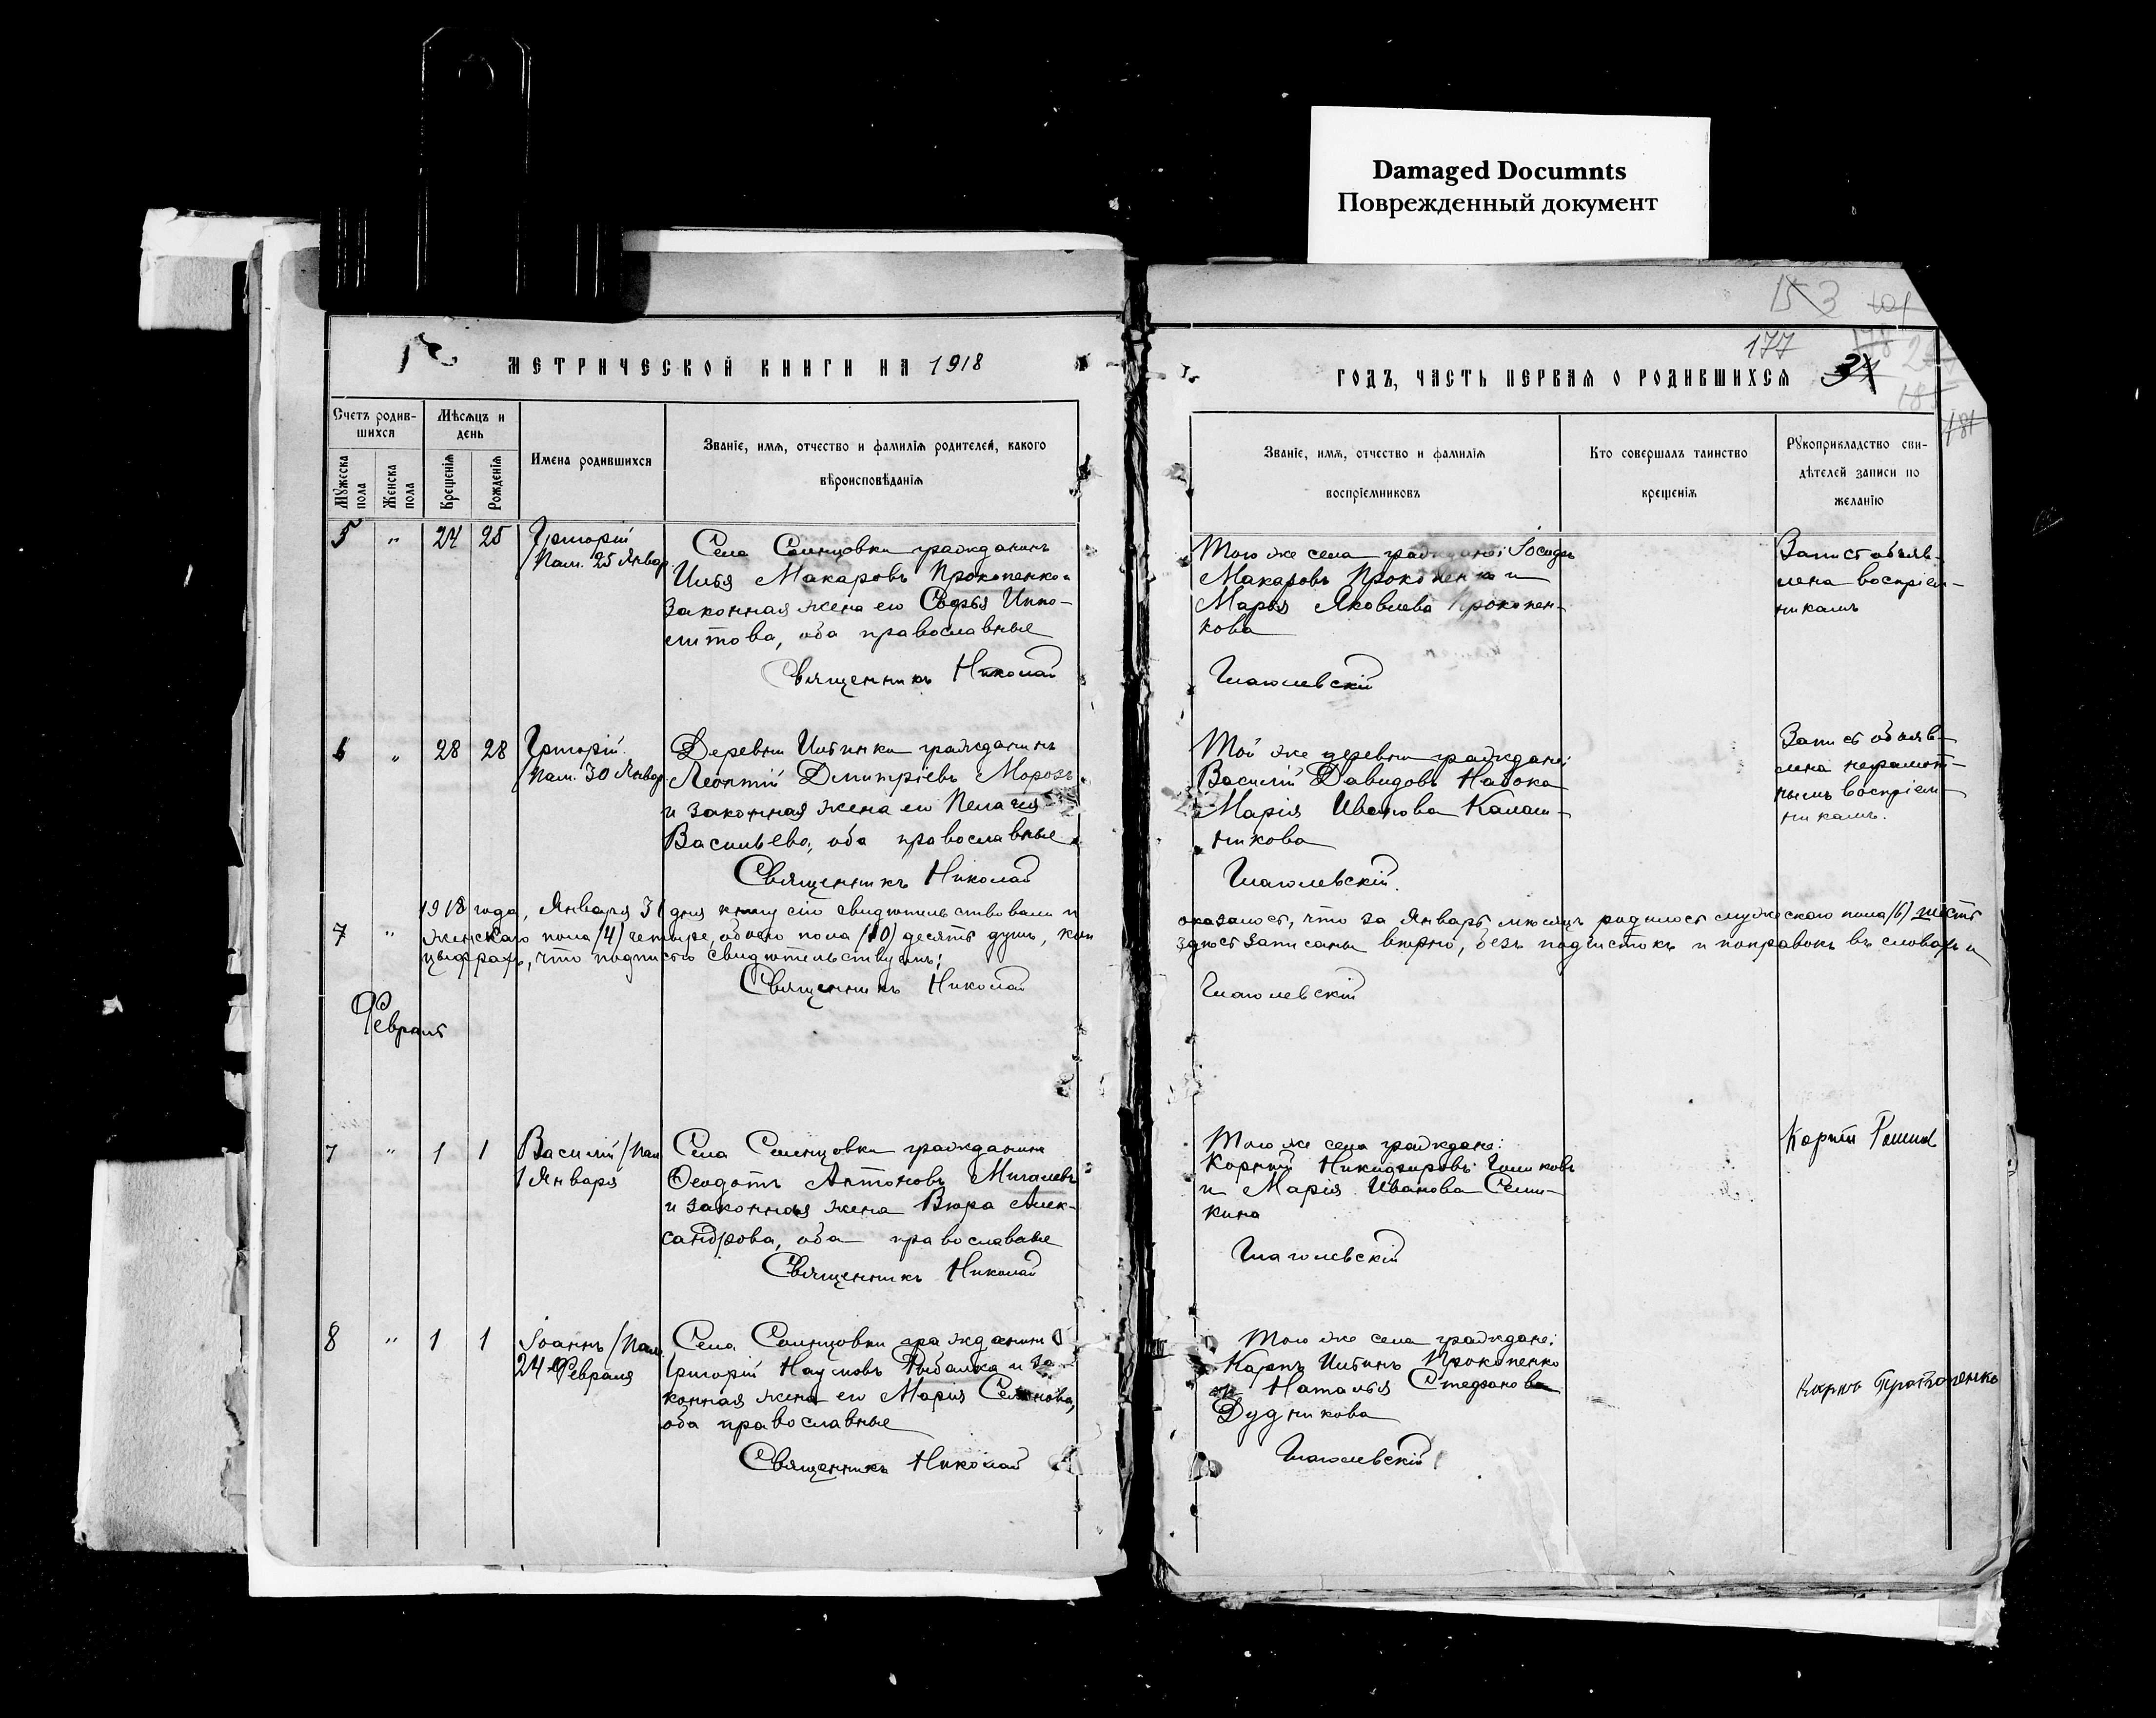 Damaged Documnts
Поврежденный документ
177
МЕТРИЧЕСКОЙ КНИГИ НА 1918
ГОДЪ, ЧАСТЬ ПЕРВАЯ О РОДИВШИХСЯ
Счетъ родив-
шихся
Мужеска пола
Женска пола
Мѣсяцъ и
день
Крещенія
Рожденія
Имена родившихся
Званіе, имя, отчество и фамилія родителей, какого
вѣроисповѣданія
Званіе, имя, отчество и фамилія
воспріемниковъ
Кто совершалъ таинство
крещенія
Рукоприкладство сви-
дѣтелей записи по
желанію
5 " 24 25 Григорій
/Пам. 25 Январ.
Села Солнцовки гражданинъ
Илья Макаровъ Прокопенко и
законная жена его Софья Иппо-
литова, оба православные
Священникъ Николай
Того же села граждане: Іосифъ
Макаровъ Прокопенко и
Марья Яковлева Прокопен-
кова
Глаголевскій
Запись объяв-
лена воспріем-
никамъ
6 " 28 28 Григорій
/Пам. 30 Январ.
Деревни Ильинки гражданинъ
Леонтій Дмитріевъ Морозъ
и законная жена его Пелагія
Васильева, оба православные
Священникъ Николай
Той же деревни граждане:
Василій Давидовъ Набока
Марія Иванова Калаш-
никова
Глаголевскій.
Запись объяв-
лена неграмот-
нымъ воспріем-
никамъ.
1918 года, Января 31 дня книгу сію свидѣтельствовали и
оказалось, что за Январь мѣсяцъ родилось мужеского пола /6/ шесть
7 " женскаго пола /4/ четыре, обоего пола /10/ десять душъ, кои
здѣсь записаны вѣрно, безъ подчистокъ и поправокъ въ словахъ и
цыфрахъ, что подписью свидѣтельствуемъ:
Священникъ Николай
Глаголевскій
Февраль
7 " 1 1 Василій /Пам.
1 Января
Села Солнцовки гражданинъ
Ѳеодотъ Антоновъ Мигалевъ
и законная жена Вѣра Алек-
сандрова, оба православные
Священникъ Николай
Того же села граждане:
Корнилій Никифоровъ Голиковъ
и Марія Иванова Семи-
кина
Глаголевскій
8 " 1 1 Іоаннъ /Пам.
24 Февраля
Села Солнцовки гражданинъ
Григорій Наумовъ Рыбалка и за-
конная жена его Марія Семенова,
оба православные
Священникъ Николай
Того же села граждане:
Карпъ Ильинъ Прокопенко
и Наталья Стефанова
Дудникова
Глаголевскій
Карпъ Прокопенко